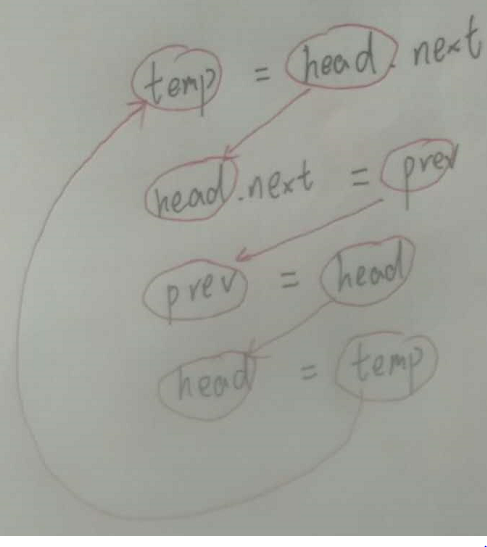 temp = head.next
head.next = prev
prev = head
head = temp